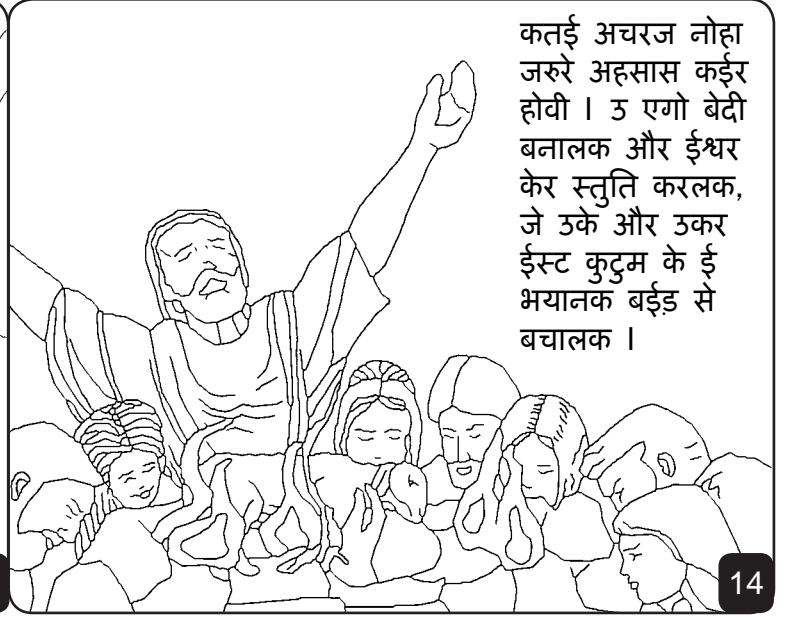 कतई अचरज नोहा
जरुरे अहसास कईर
होवी । उ एगो बेदी
बनालक और ईश्वर
केर स्तुति करलक,
जे उके और उकर
ईस्ट कुटुम के ई
भयानक बईड़ से
बचालक ।
14